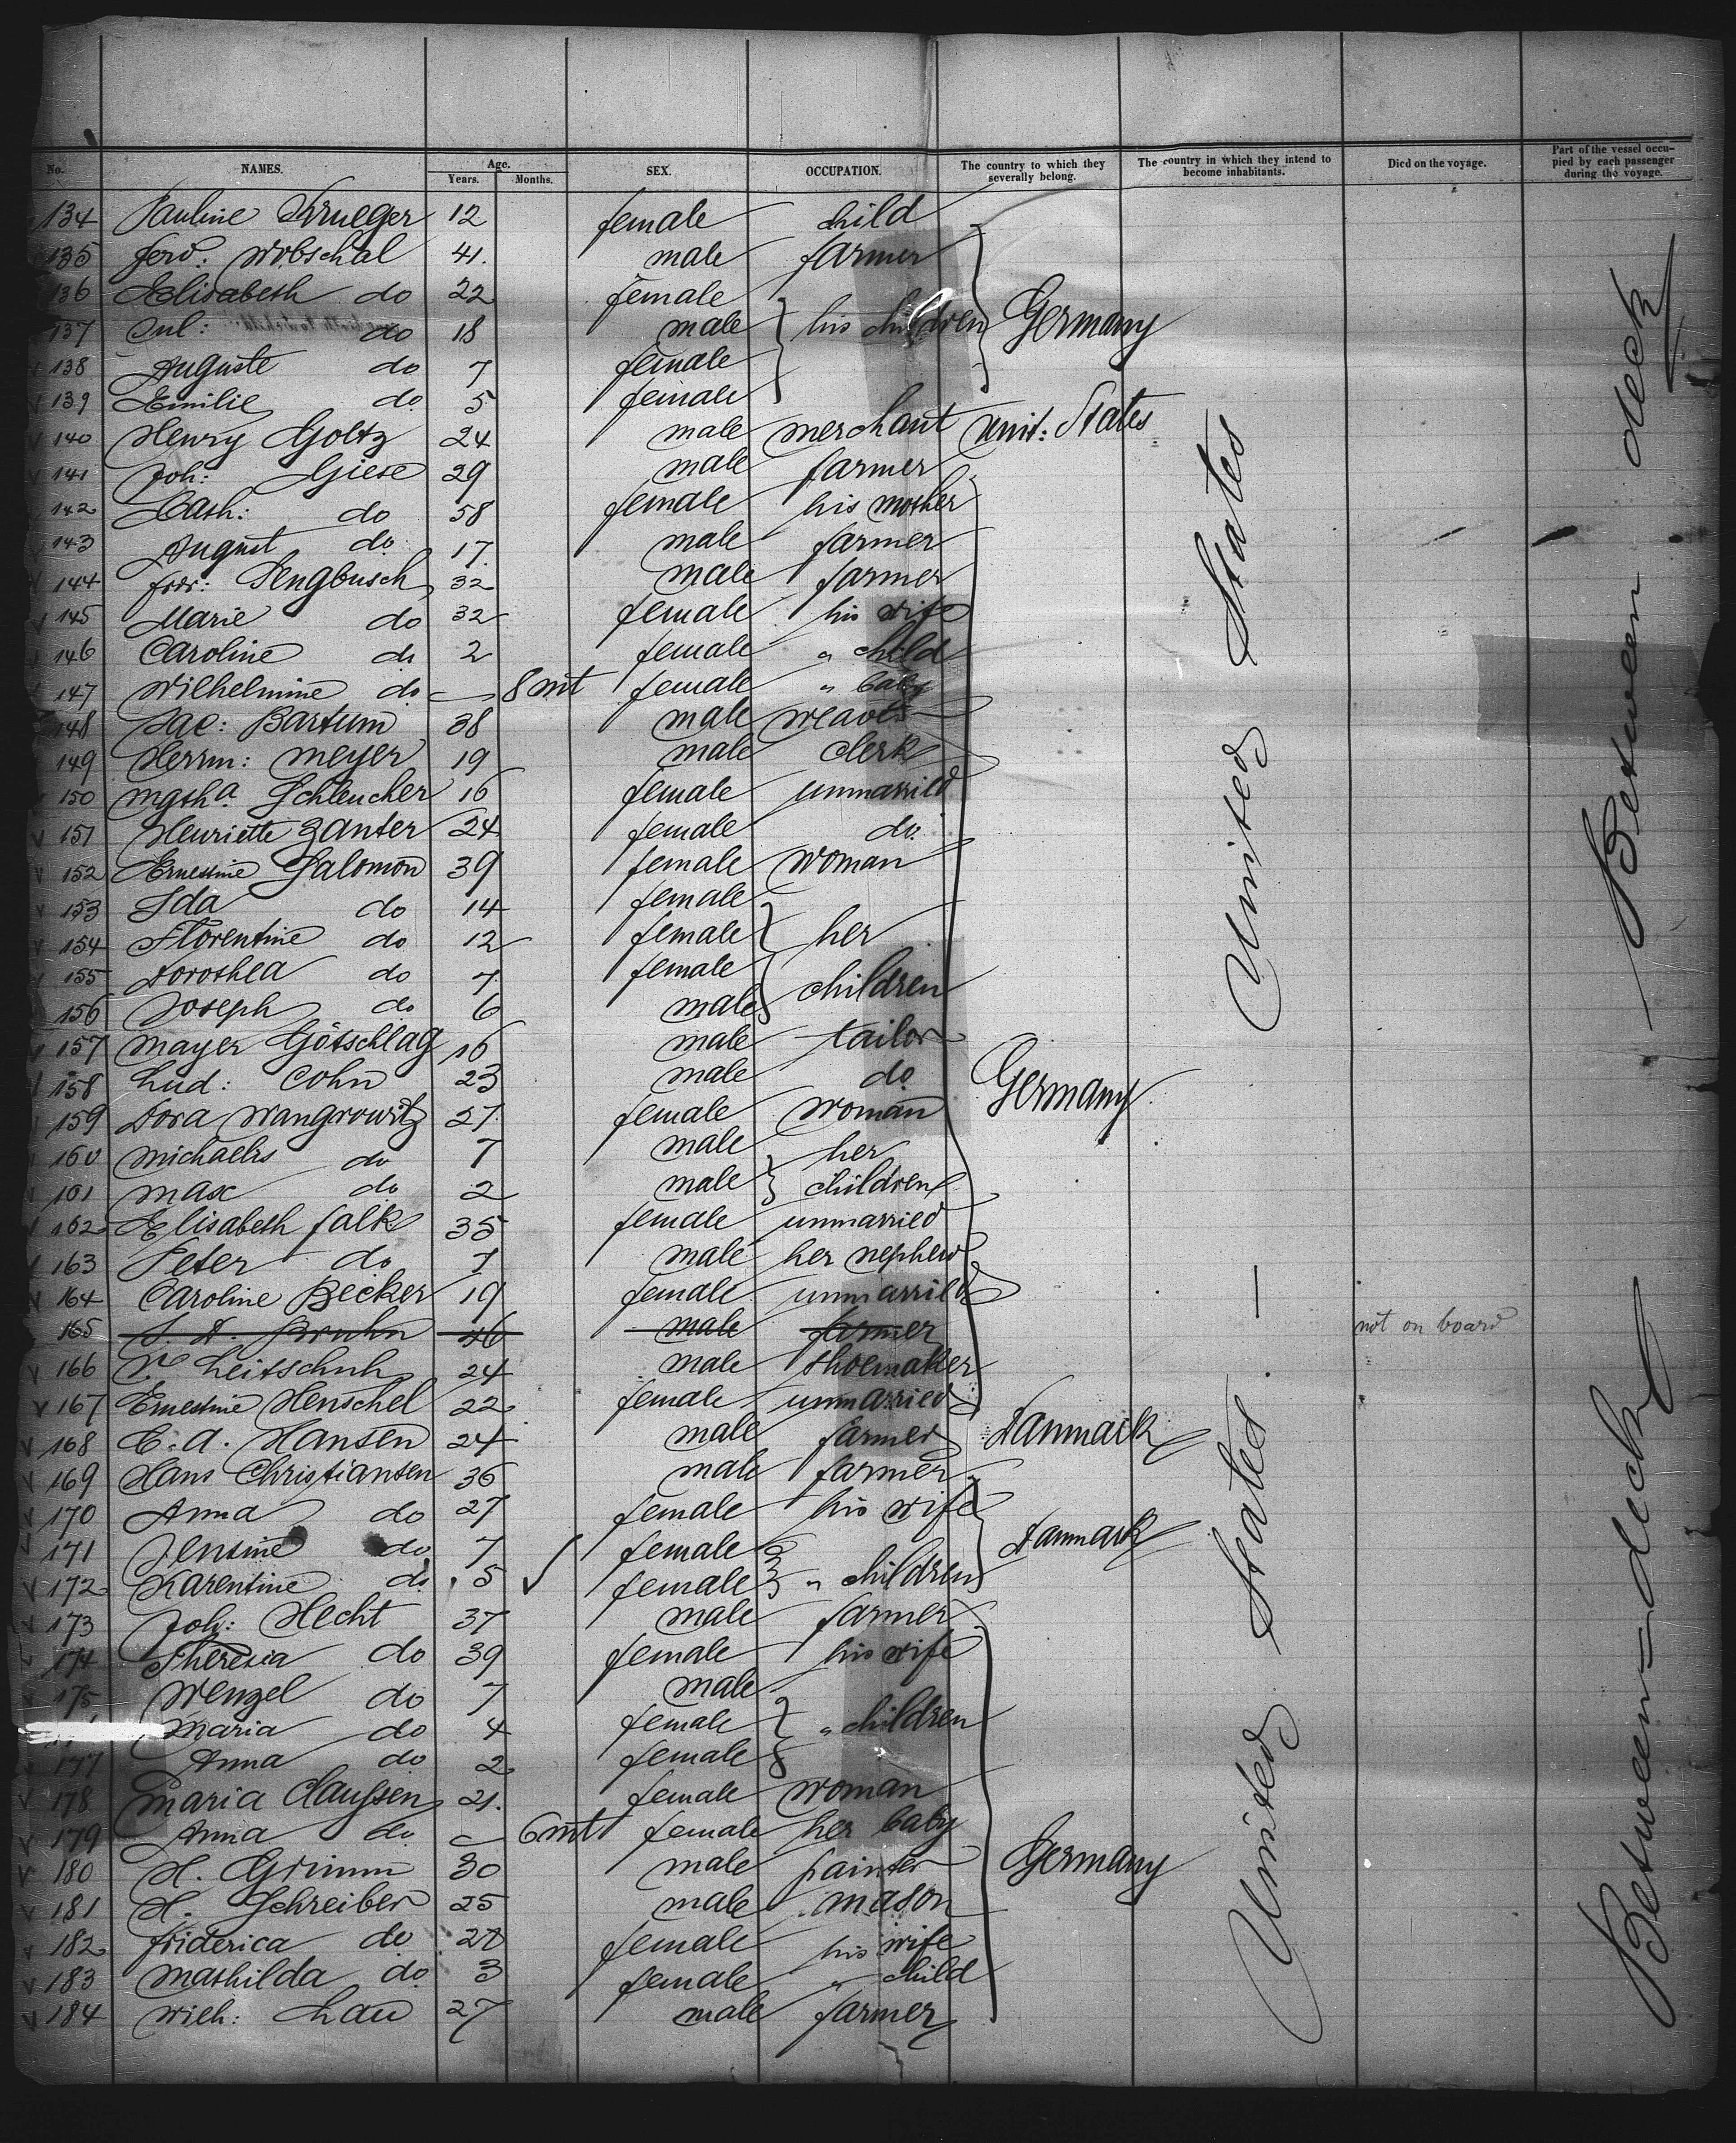 No. NAMES. Age. Years. Months. SEX. OCCUPATION. The country to which they severally belong. The country in which they intend to become inhabitants. Died on the voyage. Part of the vessel occupied by each passenger during the voyage.
134 Pauline Krueger 12 female child
135 Ferd: Wobschal 41. male farmer
136 Elisabeth do 22 female
137 Jul: do 18 male his children Germany
138 Auguste do 7 female
139 Emilie do 5 female
140 Henry Goltz 24 male merchant Unit: States
141 Joh: Giese 29 male farmer
142 Cath: do 58 female his mother
143 August do 17. male farmer
144 Frdr: Sengbusch 32 male farmer
145 Marie do 32 female his wife
146 Caroline do 2 female " child
147 Wilhelmine do — 8 mt female " baby
148 Jac: Bartum 38 male weaver
149 Herrm: Meyer 19 male clerk
150 Mgtha Schleucher 16 female unmarried
151 Henriette Zanter 24 female do.
152 Ernestine Salomon 39 female woman
153 Ida do 14 female
154 Florentine do 12 female her
155 Dorothea do 7 female children
156 Joseph do 6 male
157 Mayer Götschlag 16 male tailor
158 Lud: Cohn 23 male do Germany
159 Dora Wangrowitz 27. female woman
160 Michaelis do 7 male her
161 Max do 2 male children
162 Elisabeth Falk 35 female unmarried
163 Peter do 7 male her nephew
164 Caroline Becker 19 female unmarried
165 Bruhn 46 male farmer not on board
166 Leitschuh 24 male shoemaker
167 Ernestine Henschel 22 female unmarried
168 C. A. Hansen 24 male farmer Danmark
169 Hans Christiansen 36 male farmer
170 Anna do 27 female his wife
171 Jensine do 7 female Danmark
172 Karentine do 5 female " children
173 Joh: Hecht 37 male farmer
174 Theresia do 39 female his wife
175 Wenzel do 7 male
Maria do 4 female " children
177 Anna do 2 female
178 Maria Claussen 21. female woman
179 Anna do — 6 mt female her baby
180 H. Grimm 30 male painter Germany
181 H. Schreiber 25 male mason
182 Friderica do 28 female his wife
183 Mathilda do 3 female " child
184 Wilh: Lau 27 male farmer
United States
United States —
Between deck
Between-deck